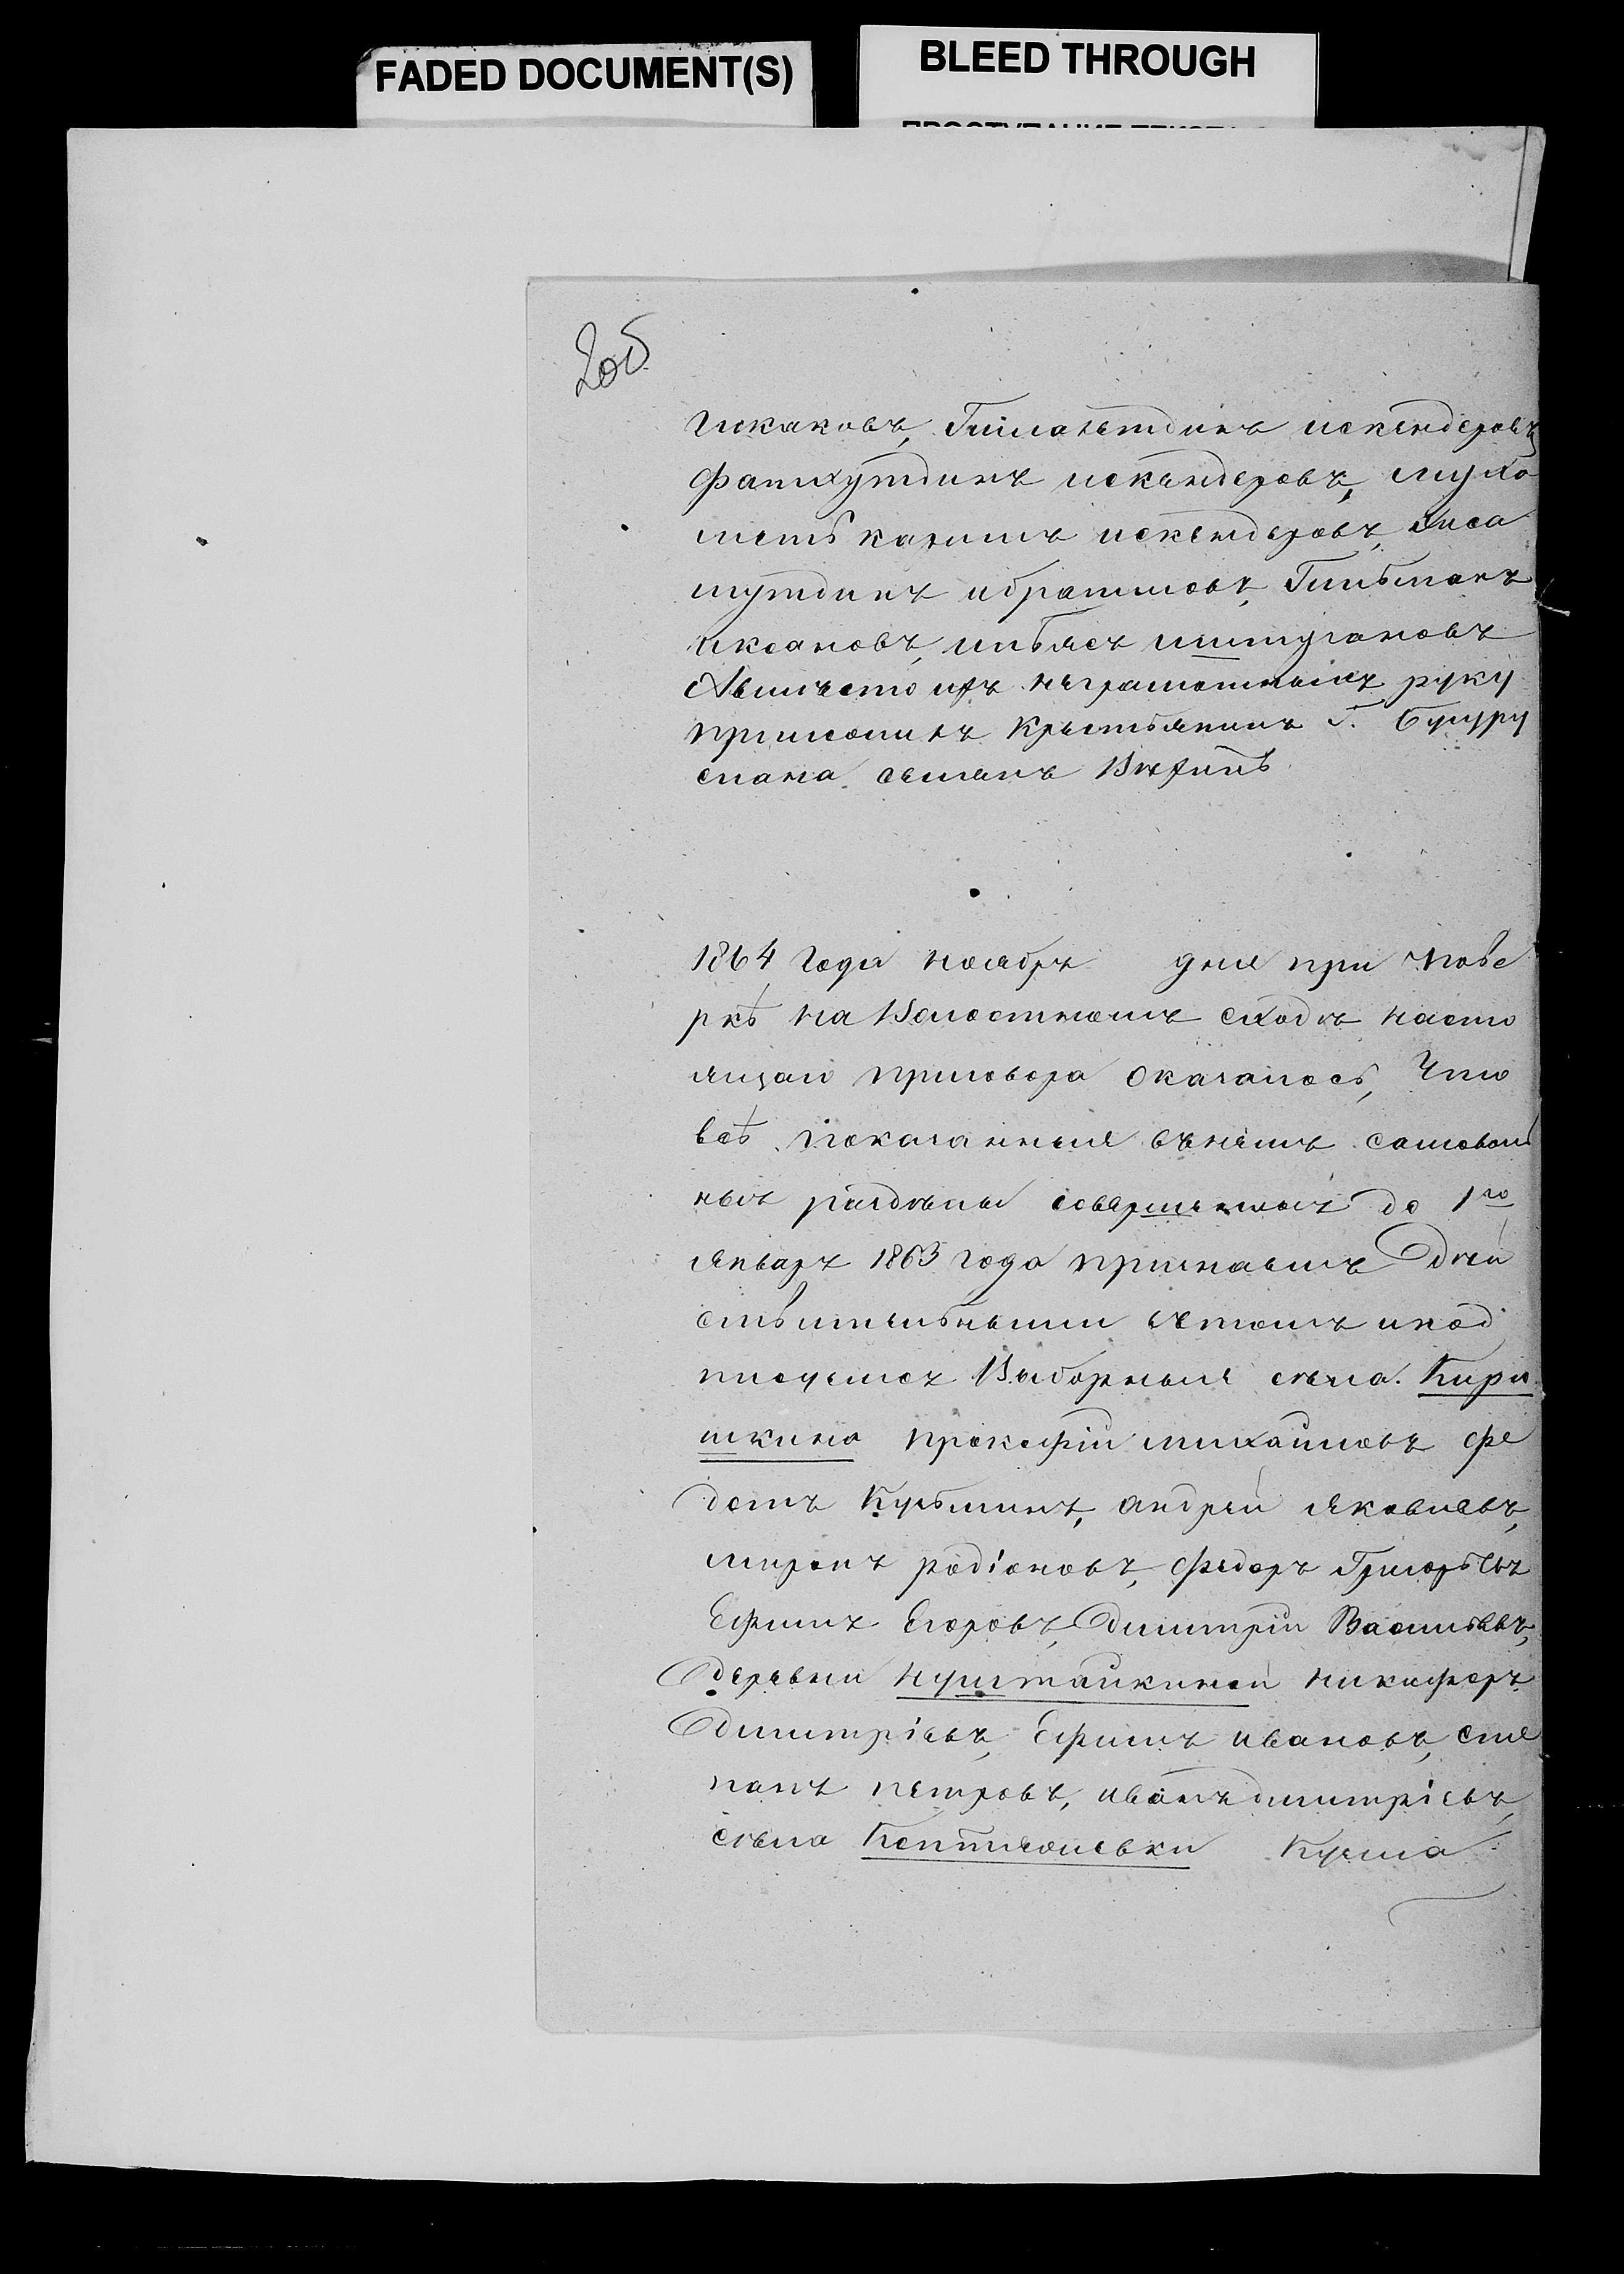 FADED DOCUMENT(S)
BLEED THROUGH
2об
Гималетдинъ искендеровъ
Фатхутдинъ искендеровъ, муха
метъ каримъ искендеровъ, Хиса
мутдинъ ибрагимовъ, Гильманъ
иксановъ, ильясъ иштугановъ
Авместо ихъ неграмотныхъ руку
приложилъ Крестьянинъ Г. Бугуру
слана семенъ
1864 Года ноября дня при пове
ркѣ на Волостномъ сходѣ насто
ящаго приговора оказалось, Что
всѣ показанныя внемъ самоволь
ныя раздѣлы совершены до 1го
января 1863 года признаемъ Дѣй
ствительными вчемъ и под
писуемся Выборныя сѣла Кирю
шкина прокофій михайловъ фе
дотъ Кузьминъ, андрей яковлевъ,
миронъ родіоновъ, федоръ Григорьевъ
Ефимъ Егоровъ, Димитрій Васильевъ,
Деревни нуштайкиной никифоръ
Димитріевъ, Ефимъ ивановъ, сте
панъ петровъ, иванъ димитріевъ,
сѣла Коптяжевки Кузма